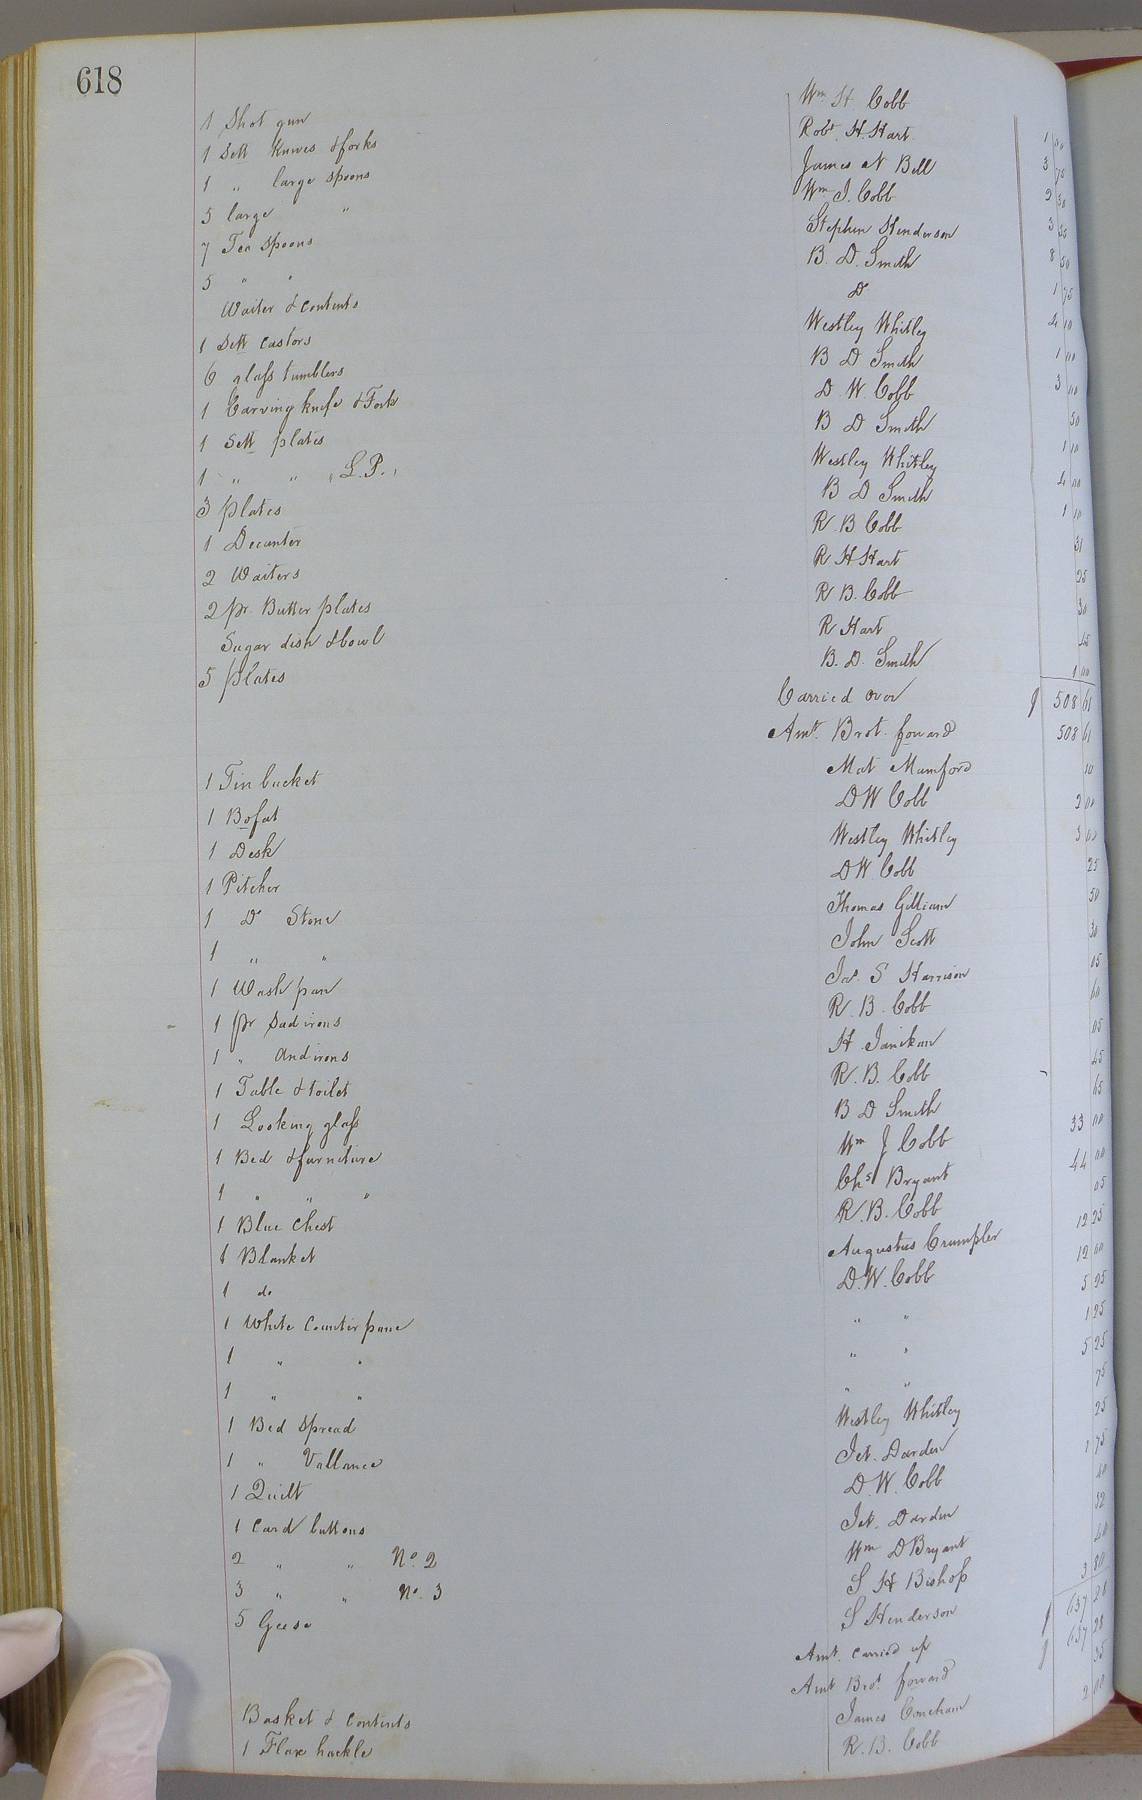 618
1 Shot gun Wm H. Cobb 1 00
1 Sett Knives & forks Robt. H. Hart 3 75
1 " large spoons James N Bell 2 50
5 large " Wm J. Cobb 3 25
7 Tea Spoons Stephen Henderson 8 50
5 " " B. D. Smith 1 75
Waiter & contents Do 4 10
1 Sett castors Westley Whitley 1 00
6 glass tumblers B D Smith 3 00
1 Carving knife & Fork D. W. Cobb 50
1 Sett plates B D Smith 1 10
1 " " "L.P." Westley Whitley 4 00
3 plates B D Smith 1 10
1 Decanter R B Cobb 31
2 Waiters R H Hart 25
2 pr. Butter plates R B. Cobb 30
Sugar dish & bowl R Hart 45
5 plates B. D. Smith 1 00
Carried over $ 508 61
Amt. Brot. forward 508 61
1 Tin bucket Mat Mumford 10
1 Bofat D W Cobb 2 00
1 Desk Westley Whitley 3 00
1 Pitcher D W. Cobb 25
1 Do Stone Thomas Gilliam 50
1 " " John Scott 30
1 Wash pan Jas. S Harrison 05
1 pr Sad irons R. B. Cobb 60
1 " Andirons H. Janikan 05
1 Table & toilet R. B. Cobb 45
1 Looking glass B D Smith 65
1 Bed & furniture Wm J Cobb 33 00
1 " " " Chs Bryant 44 00
1 Blue Chest R. B. Cobb 05
1 Blanket Augustus Crumpler 12 25
1 do D. W. Cobb 12 00
1 White Counterpane " " 5 25
1 " " " " 1 25
1 " " " " 5 25
1 Bed Spread Westley Whitley 75
1 " Vallance Jet. Darden 25
1 Quilt D. W. Cobb 1 75
1 Card buttons Jet. Darden 40
2 " " No. 2 Wm D Bryant 32
3 " " No. 3 S H Bishop 40
5 Geese S Henderson 3 80
Amt. carried up $ 637 28
Amt Brot. forward $ 637 28
Basket & contents James Concham 35
1 Flax hackle R. B. Cobb 2 00